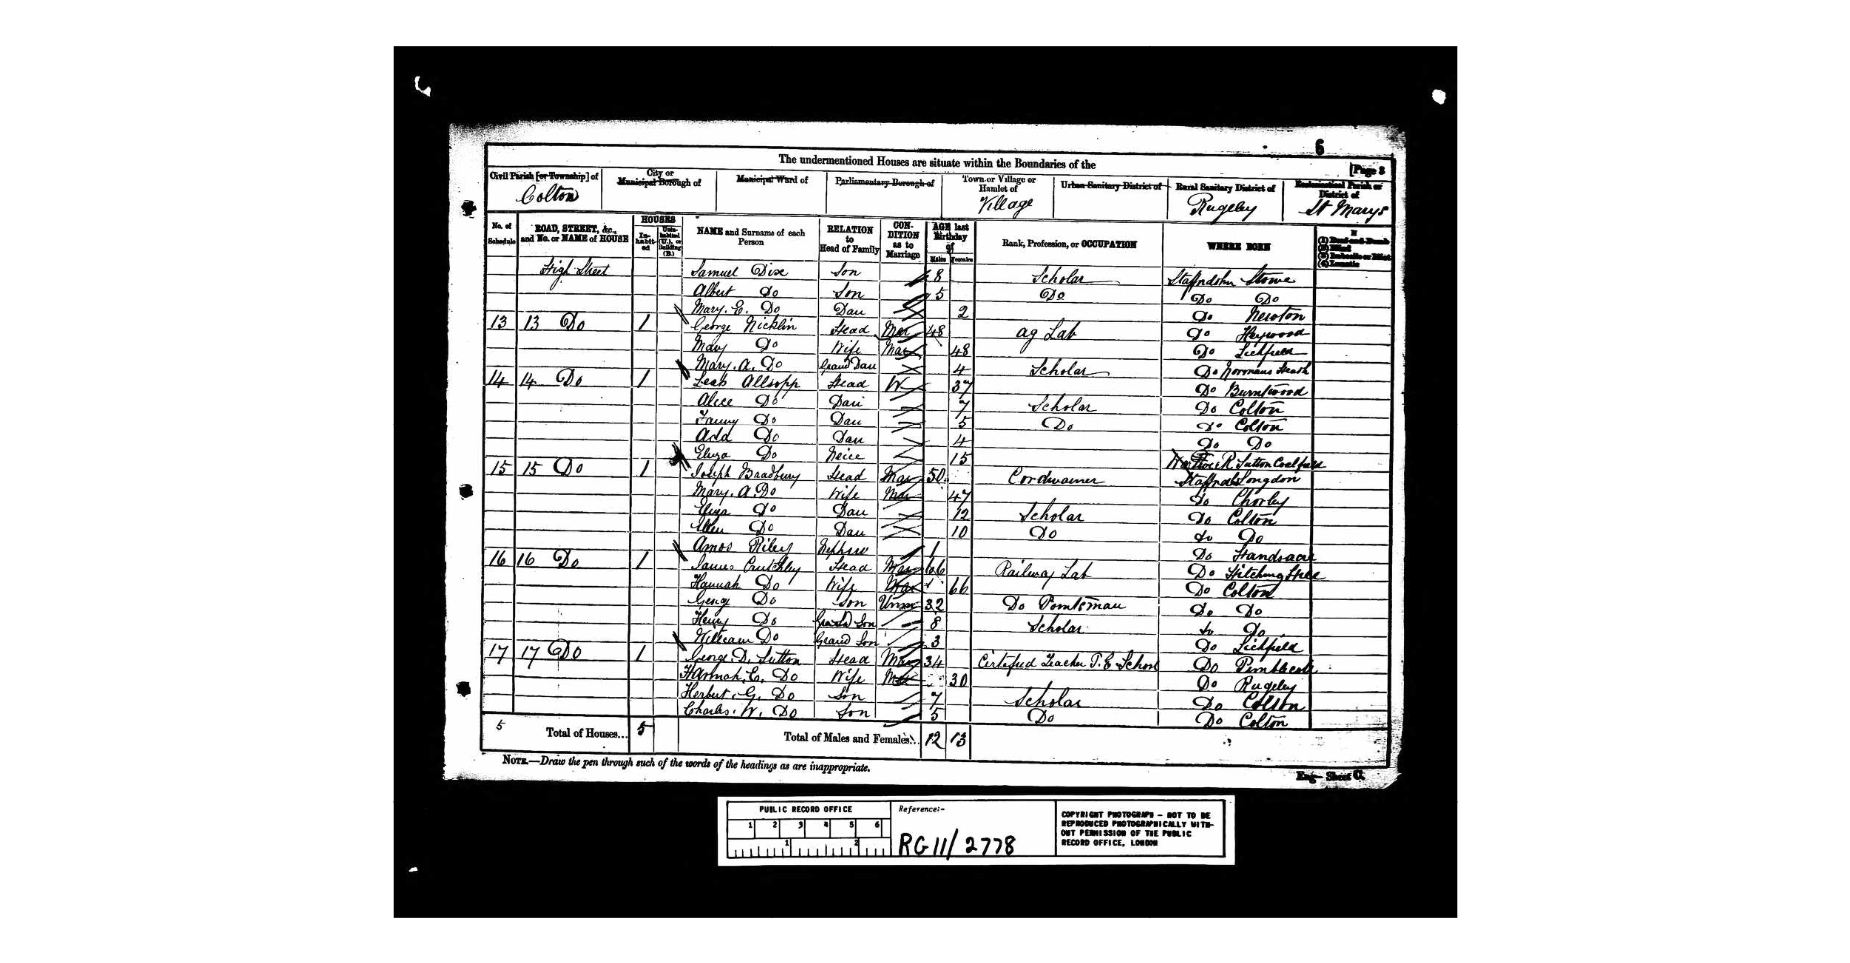 6
The undermentioned Houses are situate within the Boundaries of the
[Page 3
Civil Parish [or Township] of
City or Municipal Borough of
Municipal Ward of
Parliamentary Borough of
Town or Village or Hamlet of
Urban Sanitary District of
Rural Sanitary District of
Ecclesiastical Parish or District of
Colton
Village
Rugeley
St Marys
No. of Schedule
ROAD, STREET, &c., and No. or NAME of HOUSE
HOUSES
In-habit-ed
Unin-habited (U.), or Building (B.)
NAME and Surname of each Person
RELATION to Head of Family
CON-DITION as to Marriage
AGE last Birthday of
Males
Females
Rank, Profession, or OCCUPATION
WHERE BORN
(1) Deaf-and-Dumb
(2) Blind
(3) Imbecile or Idiot
(4) Lunatic
High Street Samuel Dix Son 8 Scholar Staffordshr Stowe
Albert Do Son 5 Do Do Do
Mary. E. Do Dau 2 Do Newton
13 13 Do 1 George Nicklin Head Mar 48 ag Lab Do Heywood
Mary Do Wife Mar 48 Do Lichfield
Mary. A. Do Grand Dau 4 Scholar Do Normans Heath
14 14 Do 1 Leah Allsopp Head W 37 Do Burntwood
Alice Do Dau 7 Scholar Do Colton
Fanny Do Dau 5 Do Do Colton
Ada Do Dau 4 Do Do
Eliza Do Neice 15 Sutton Coalfield
15 15 Do 1 Joseph Bradbury Head Mar 50 Cordwainer Staffords Longdon
Mary. A. Do Wife Mar 47 Do Chorley
Eliza Do Dau 12 Scholar Do Colton
Ellen Do Dau 10 Do Do Do
Amos Riley Nephew 1 Do Handsacre
16 16 Do 1 James Head Mar 66 Railway Lab Do
Hannah Do Wife Mar 66 Do Colton
Georg Do Son Unm 32 Do Pointsman Do Do
Henry Do Grand Son 8 Scholar Do Do
William Do Grand Son 3 Do Lichfield
17 17 Do 1 George D. Sutton Head Mar 34 Certifed Teacher P. E School Do
Hannah. E. Do Wife Mar 30 Do Rugeley
Herbert. G. Do Son 7 Scholar Do Colton
Charles. W. Do Son 5 Do Do Colton
5 Total of Houses... 5 Total of Males and Females... 12 13
NOTE.—Draw the pen through such of the words of the headings as are inappropriate.
Eng— Sheet C.
PUBLIC RECORD OFFICE
1 2 3 4 5 6
1 2
Reference:-
RG 11/2778
COPYRIGHT PHOTOGRAPH - NOT TO BE
REPRODUCED PHOTOGRAPHICALLY WITH-
OUT PERMISSION OF THE PUBLIC
RECORD OFFICE, LONDON